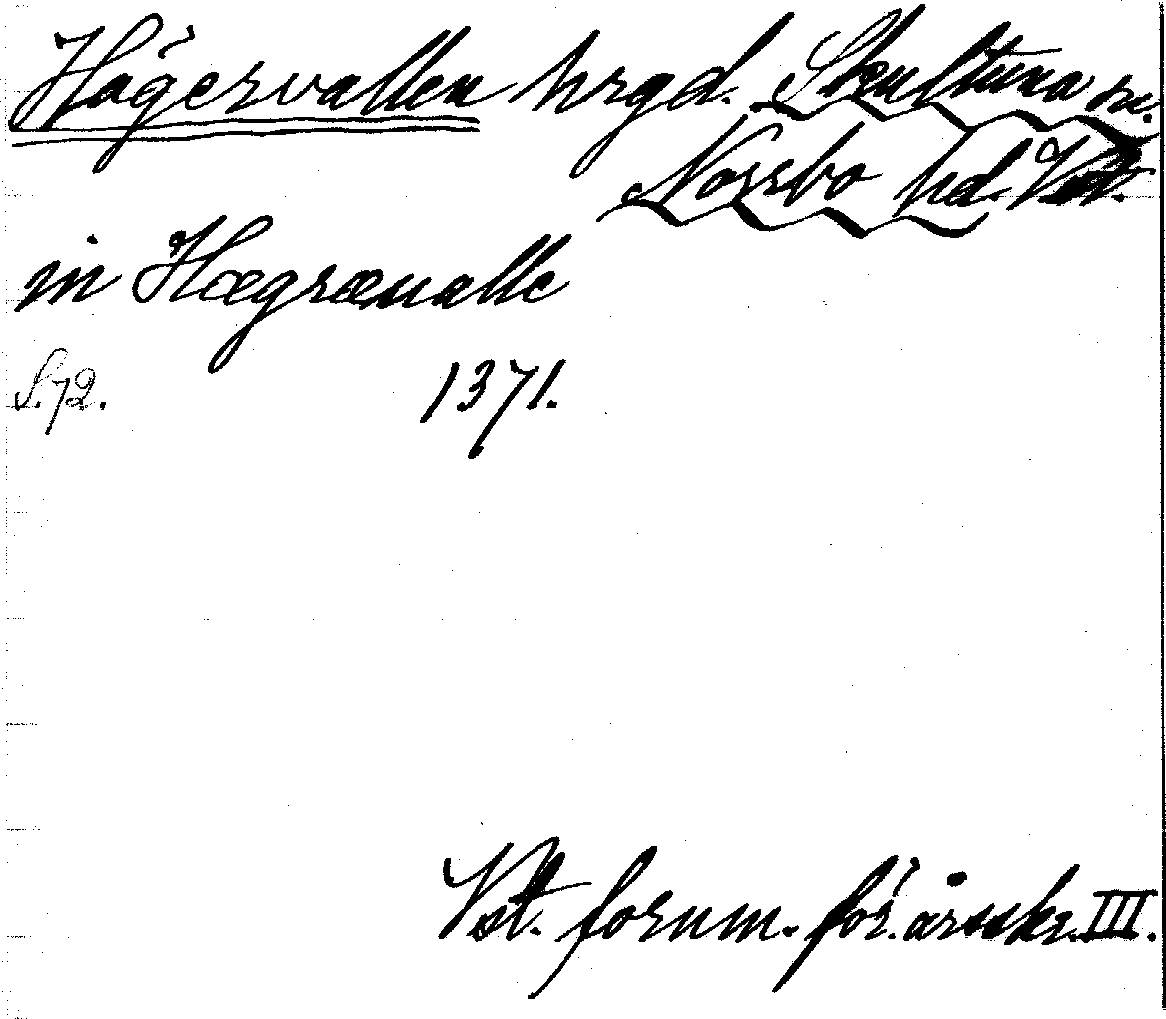 Hägervallen hrgd. Skultuna sn.
Norrbo hd. Vst.
in Hægræualle
S. 72. 1371.
Vst. fornm. för. årsskr. III.